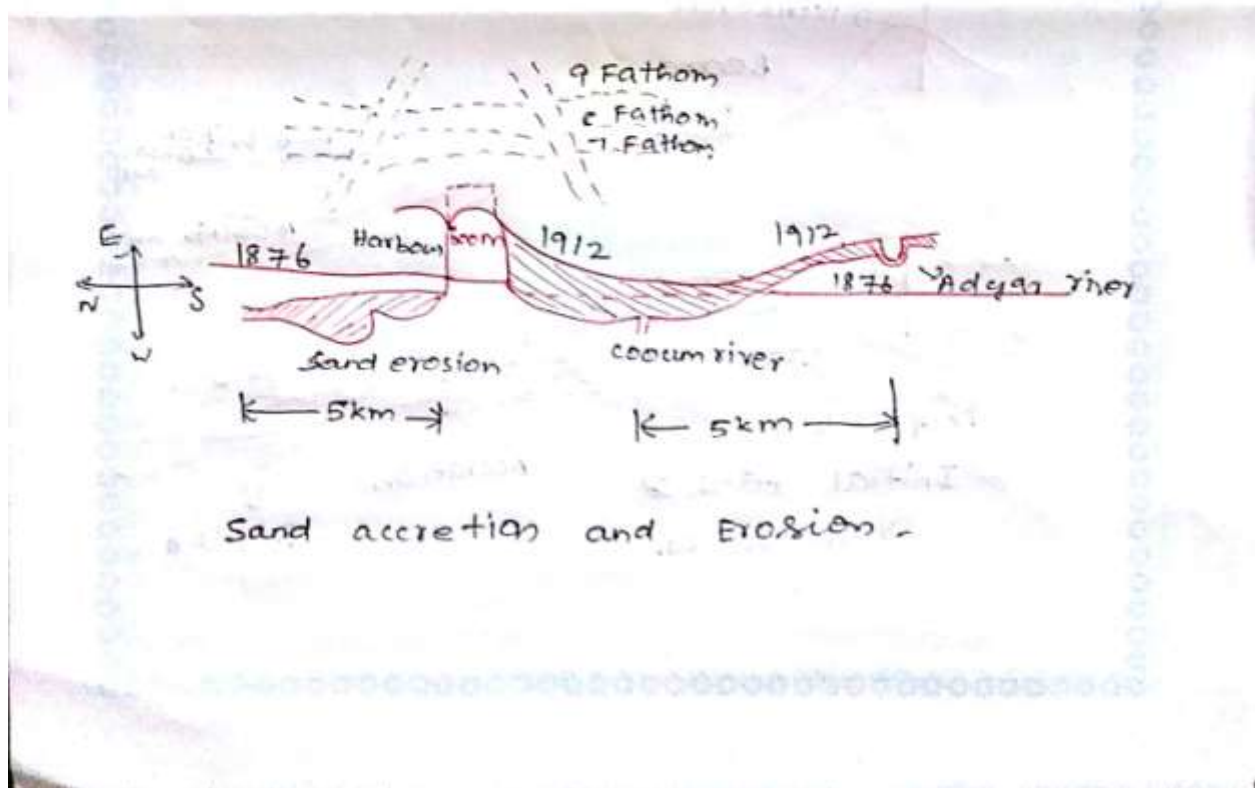 9 Fathom
Fathom
7 Fathom
E
N
S
1876
Harbour
1912
1912
1876
Adyar river
Sand erosion
coocum river
5km
5km
Sand accretion and Erosion.